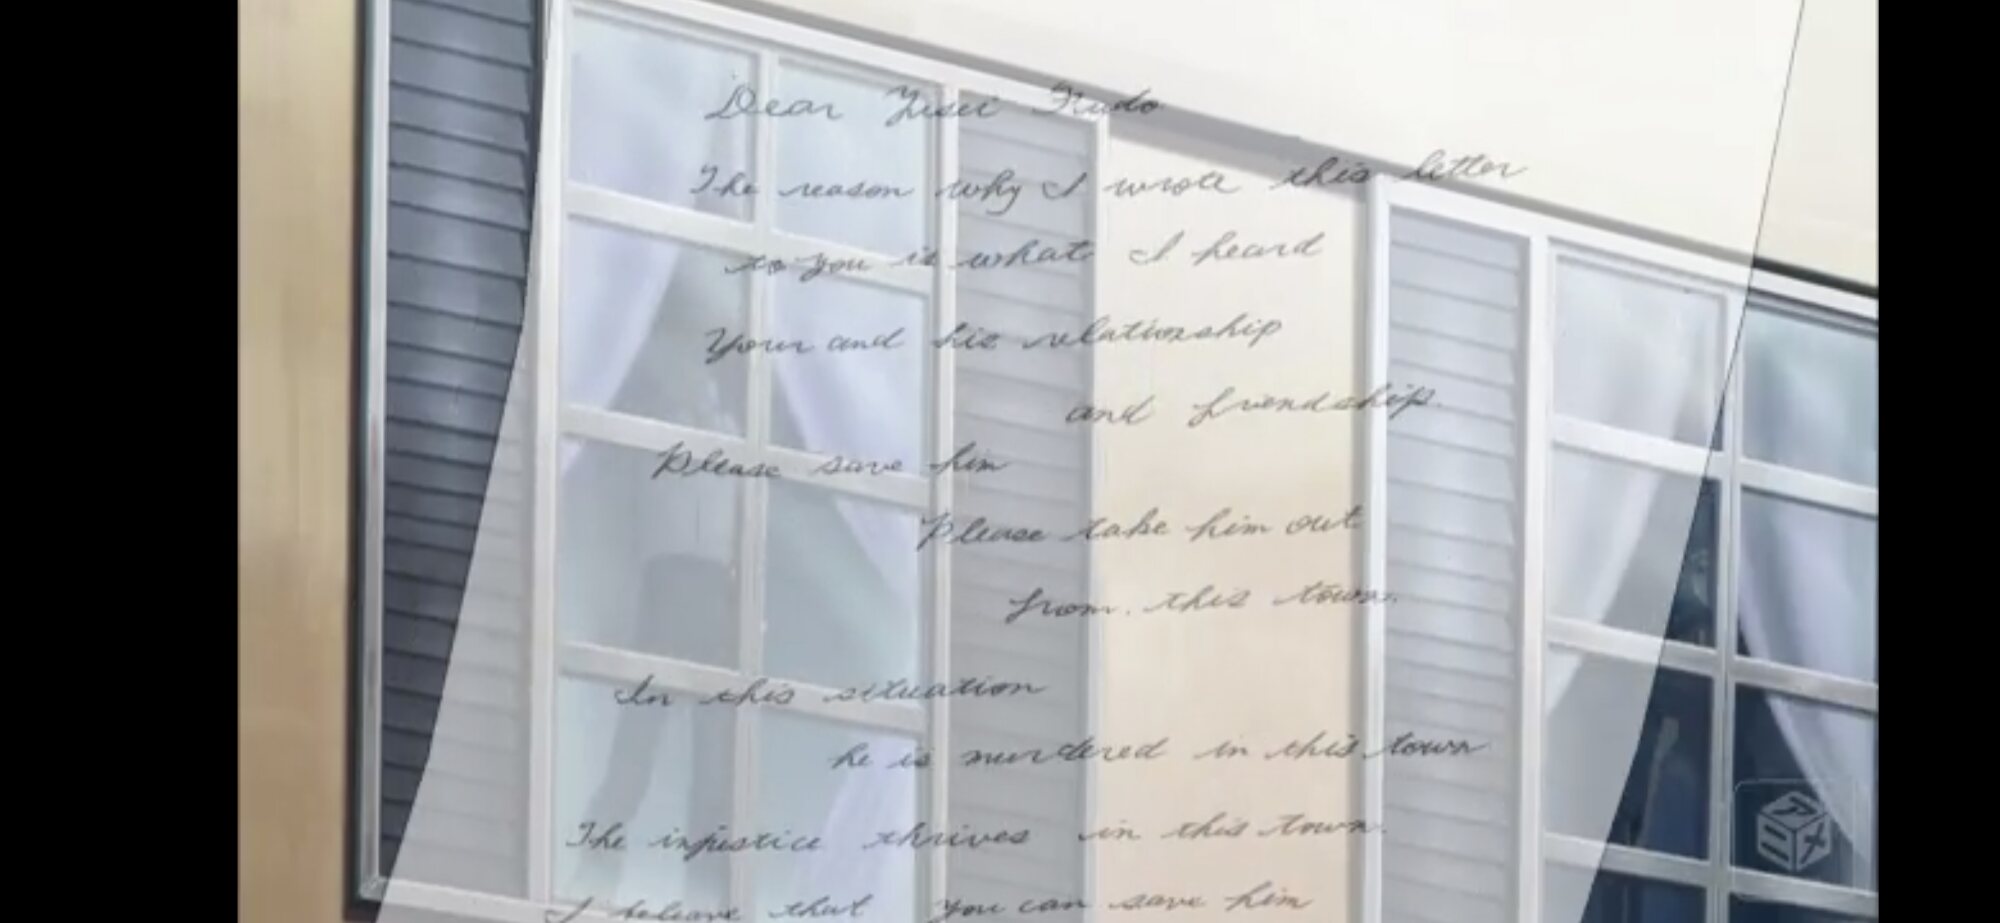 Dear Yusei Fudo
The reason why I wrote this letter
to you is what I heard
Your and his relationship
and friendship.
Please save him
Please take him out
from. this town.
In this situation
he is murdered in this town
The injustice thrives in this town.
I beleave that you can save him